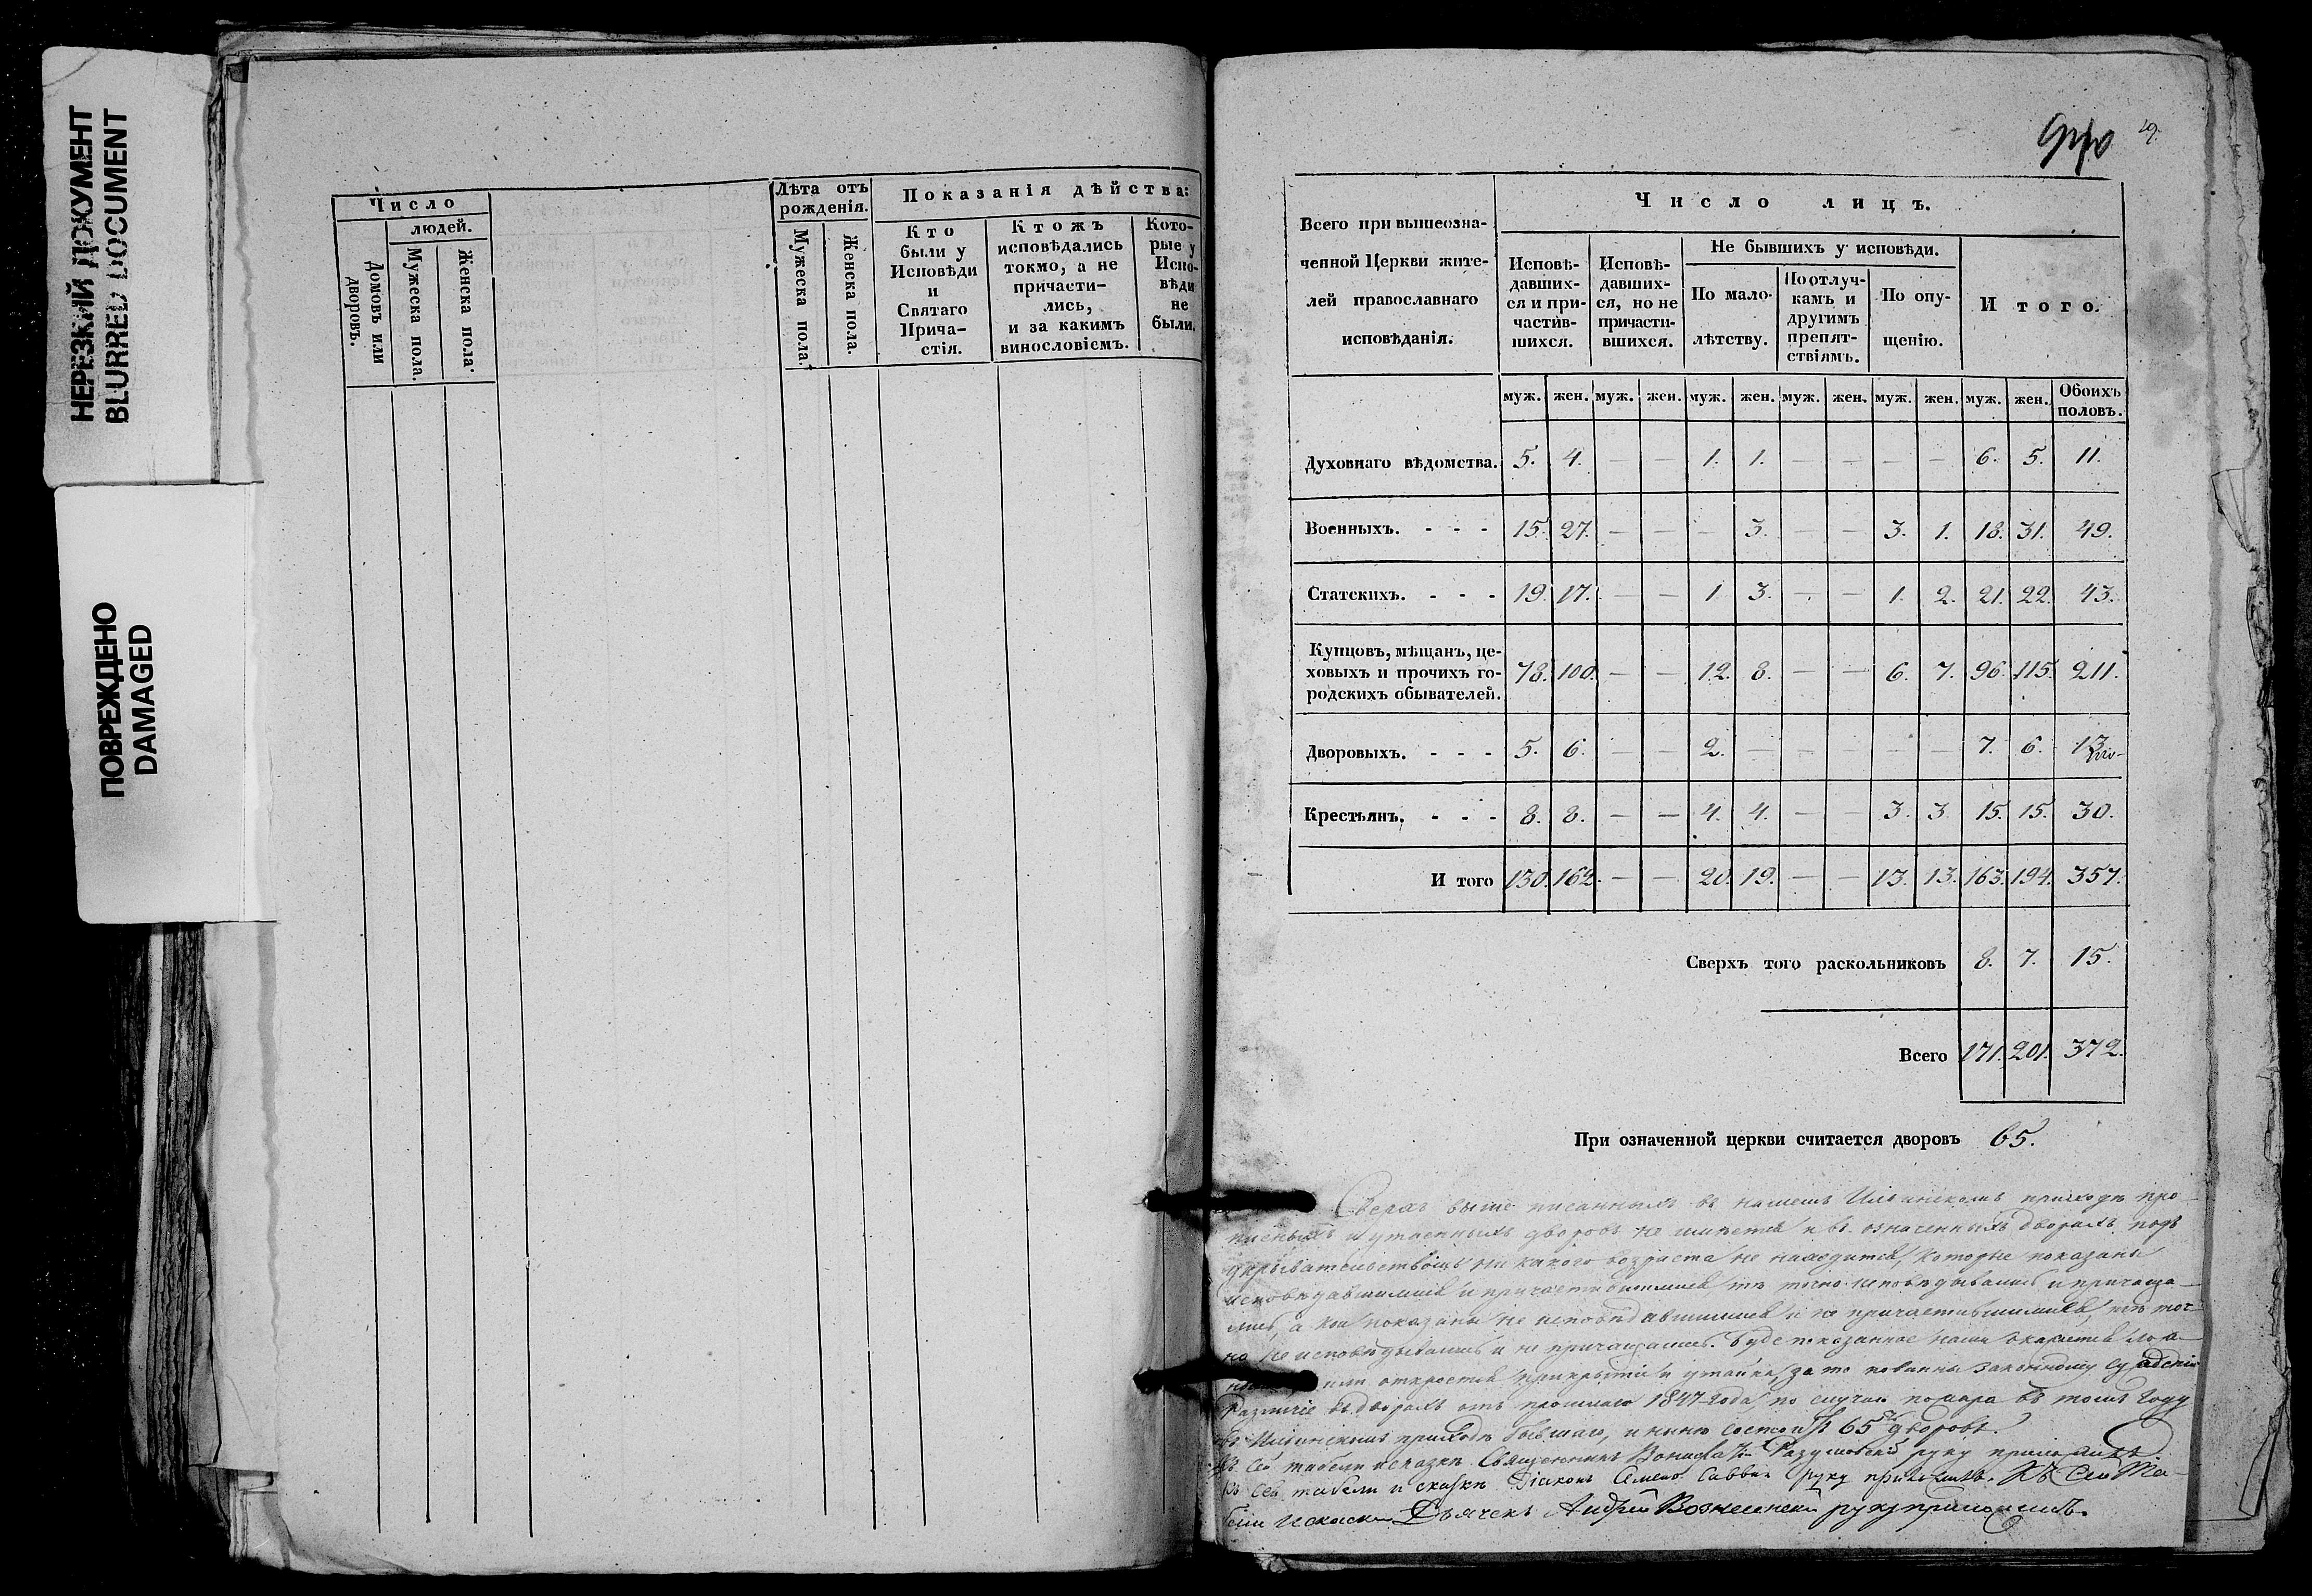 НЕРЕЗКИЙ ДОКУМЕНТ
BLURRED DOCUMENT
ПОВРЕЖДЕНО
DAMAGED
Число
людей.
Домовъ или дворовъ.
Мужеска пола.
Женска пола.
Лѣта отъ
рожденія.
Мужеска пола.
Женска пола.
Показанія дѣйства:
Кто
были у
Исповѣди
и
Святаго
Прича-
стія.
Ктожъ
исповѣдались
токмо, а не
причасти-
лись,
и за какимъ
винословіемъ.
Кото-
рые у
Испо-
вѣди
не
были.
19.
Всего при вышеозна-
ченной Церкви жите-
лей православнаго
исповѣданія.
Число лицъ.
Исповѣ-
давших-
ся и при-
частив-
шихся.
Исповѣ-
давших-
ся, но не
причасти-
вшихся.
Не бывшихъ у исповѣди.
По мало-
лѣтству.
По отлуч-
камъ и
другимъ
препят-
ствіямъ.
По опу-
щенію.
Итого.
муж. жен. муж. жен. муж. жен. муж. жен. муж. жен. муж. жен. Обоихъ
половъ.
Духовнаго вѣдомства. 5. 4. — — 1. 1. — — — — 6. 5. 11.
Военныхъ. - - - 15. 27. — — — 3. — — 3. 1. 18. 31. 49.
Статскихъ. - - - 19. 17. — — 1 3. — — 1. 2. 21. 22. 43.
Купцовъ, мѣщанъ, це-
ховыхъ и прочихъ го-
родскихъ обывателей. 78. 100. — — 12. 8. — — 6. 7. 96. 115. 211.
Дворовыхъ. - - - 5. 6. — — 2. — — — — — 7. 6. 13
Крестьянъ. - - - 8. 8. — — 4. 4. — — 3. 3. 15. 15. 30.
И того 130. 162. — — 20. 19. — — 13. 13. 163. 194. 357.
Сверхъ того раскольниковъ 8. 7. 15.
Всего 171. 201. 372.
При означенной церкви считается дворовъ 65.
Сверхъ выше писанныхъ въ нашемъ Ильинскомъ приходѣ про-
писныхъ и утаенныхъ дворовъ не имѣется и въ означенныхъ дворахъ подъ
укрывательствомъ ни какого возраста не находится, которые показаны
исповѣдавшимися и причастившимися тѣ точно исповѣдывались и причаща-
лись, а кои показаны не исповѣдавшимися и не причастившимися, тѣ точ-
но не исповѣдывались и не причащались. Буде показанное нами окажется лож-
но или откроется прикрытіе и утайка, за то повинны законному сужденію
Различіе въ дворахъ отъ прошлаго 1847 года по случаю пожара въ томъ году
въ Ильинскомъ приходѣ бывшаго, и нынѣ состоитъ 65 дворовъ.
Къ сей табели и сказкѣ Священникъ Разумовскій руку приложилъ
Къ сей табели и сказкѣ Діаконъ Семенъ Саввинъ руку приложилъ. Къ сей Та-
бели и сказки Дьячекъ Андрей Вознесенскій руку приложилъ.